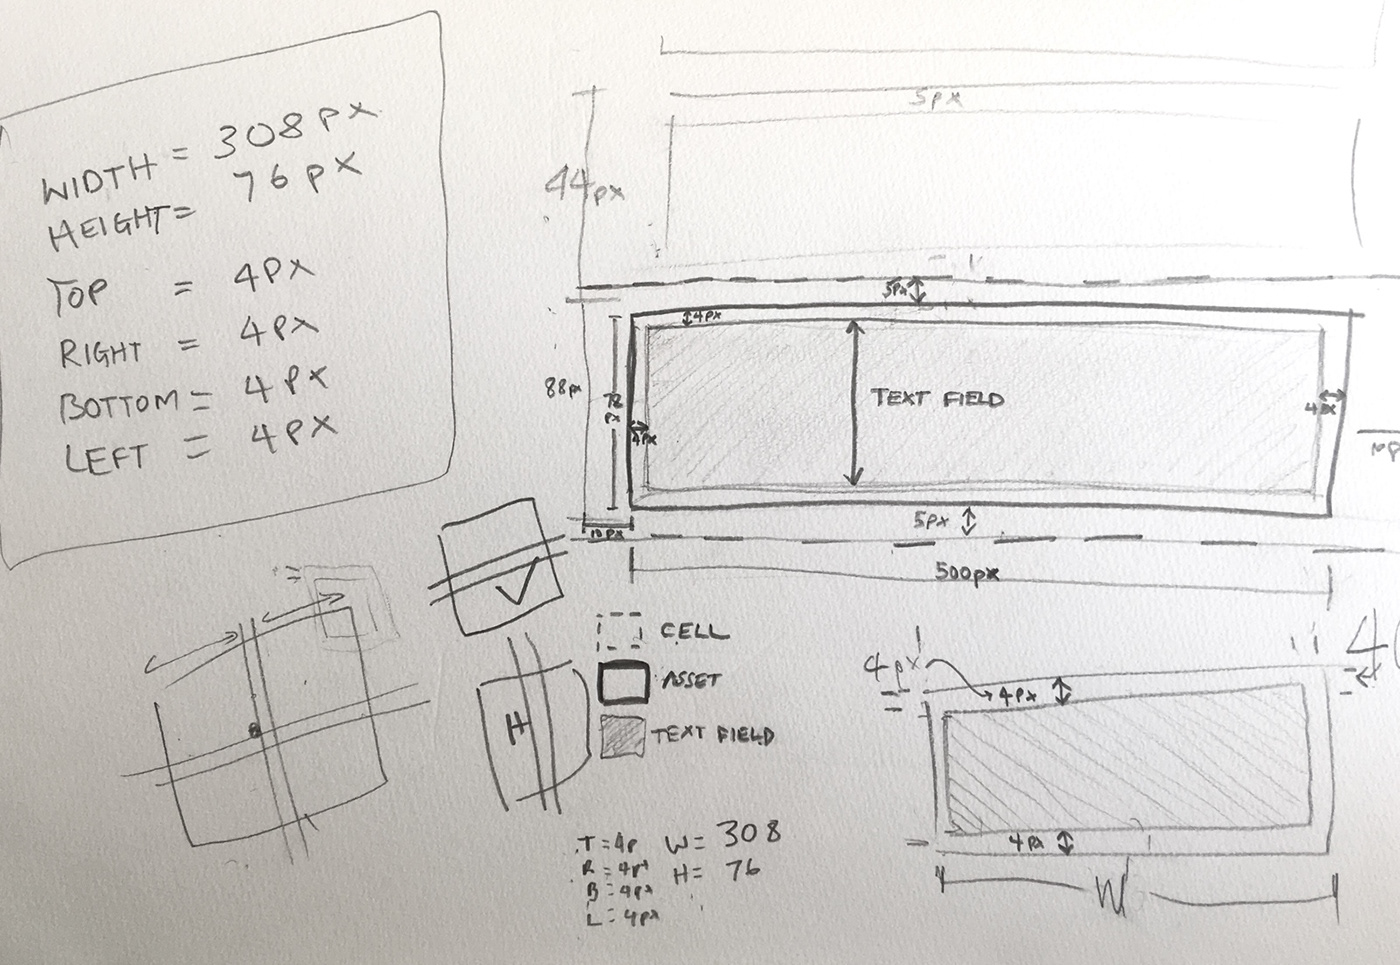 WIDTH = 308PX
HEIGHT = 76PX
TOP = 4PX
RIGHT = 4PX
BOTTOM = 4PX
LEFT = 4PX
5PX
44PX
5PX
4PX
88PX
72
PX
TEXT FIELD
4PX
4PX
5PX
10PX
500PX
=
V
H
CELL
ASSET
TEXT FIELD
4PX
4PX
4PX
W
T = 4P W = 308
R = 4PX H = 76
B = 4PX
L = 4PX